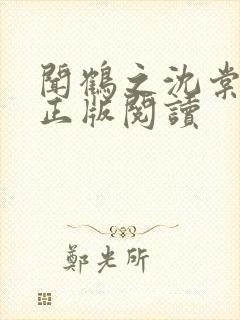 聞鶴之沈棠
正版閱讀
鄭光所